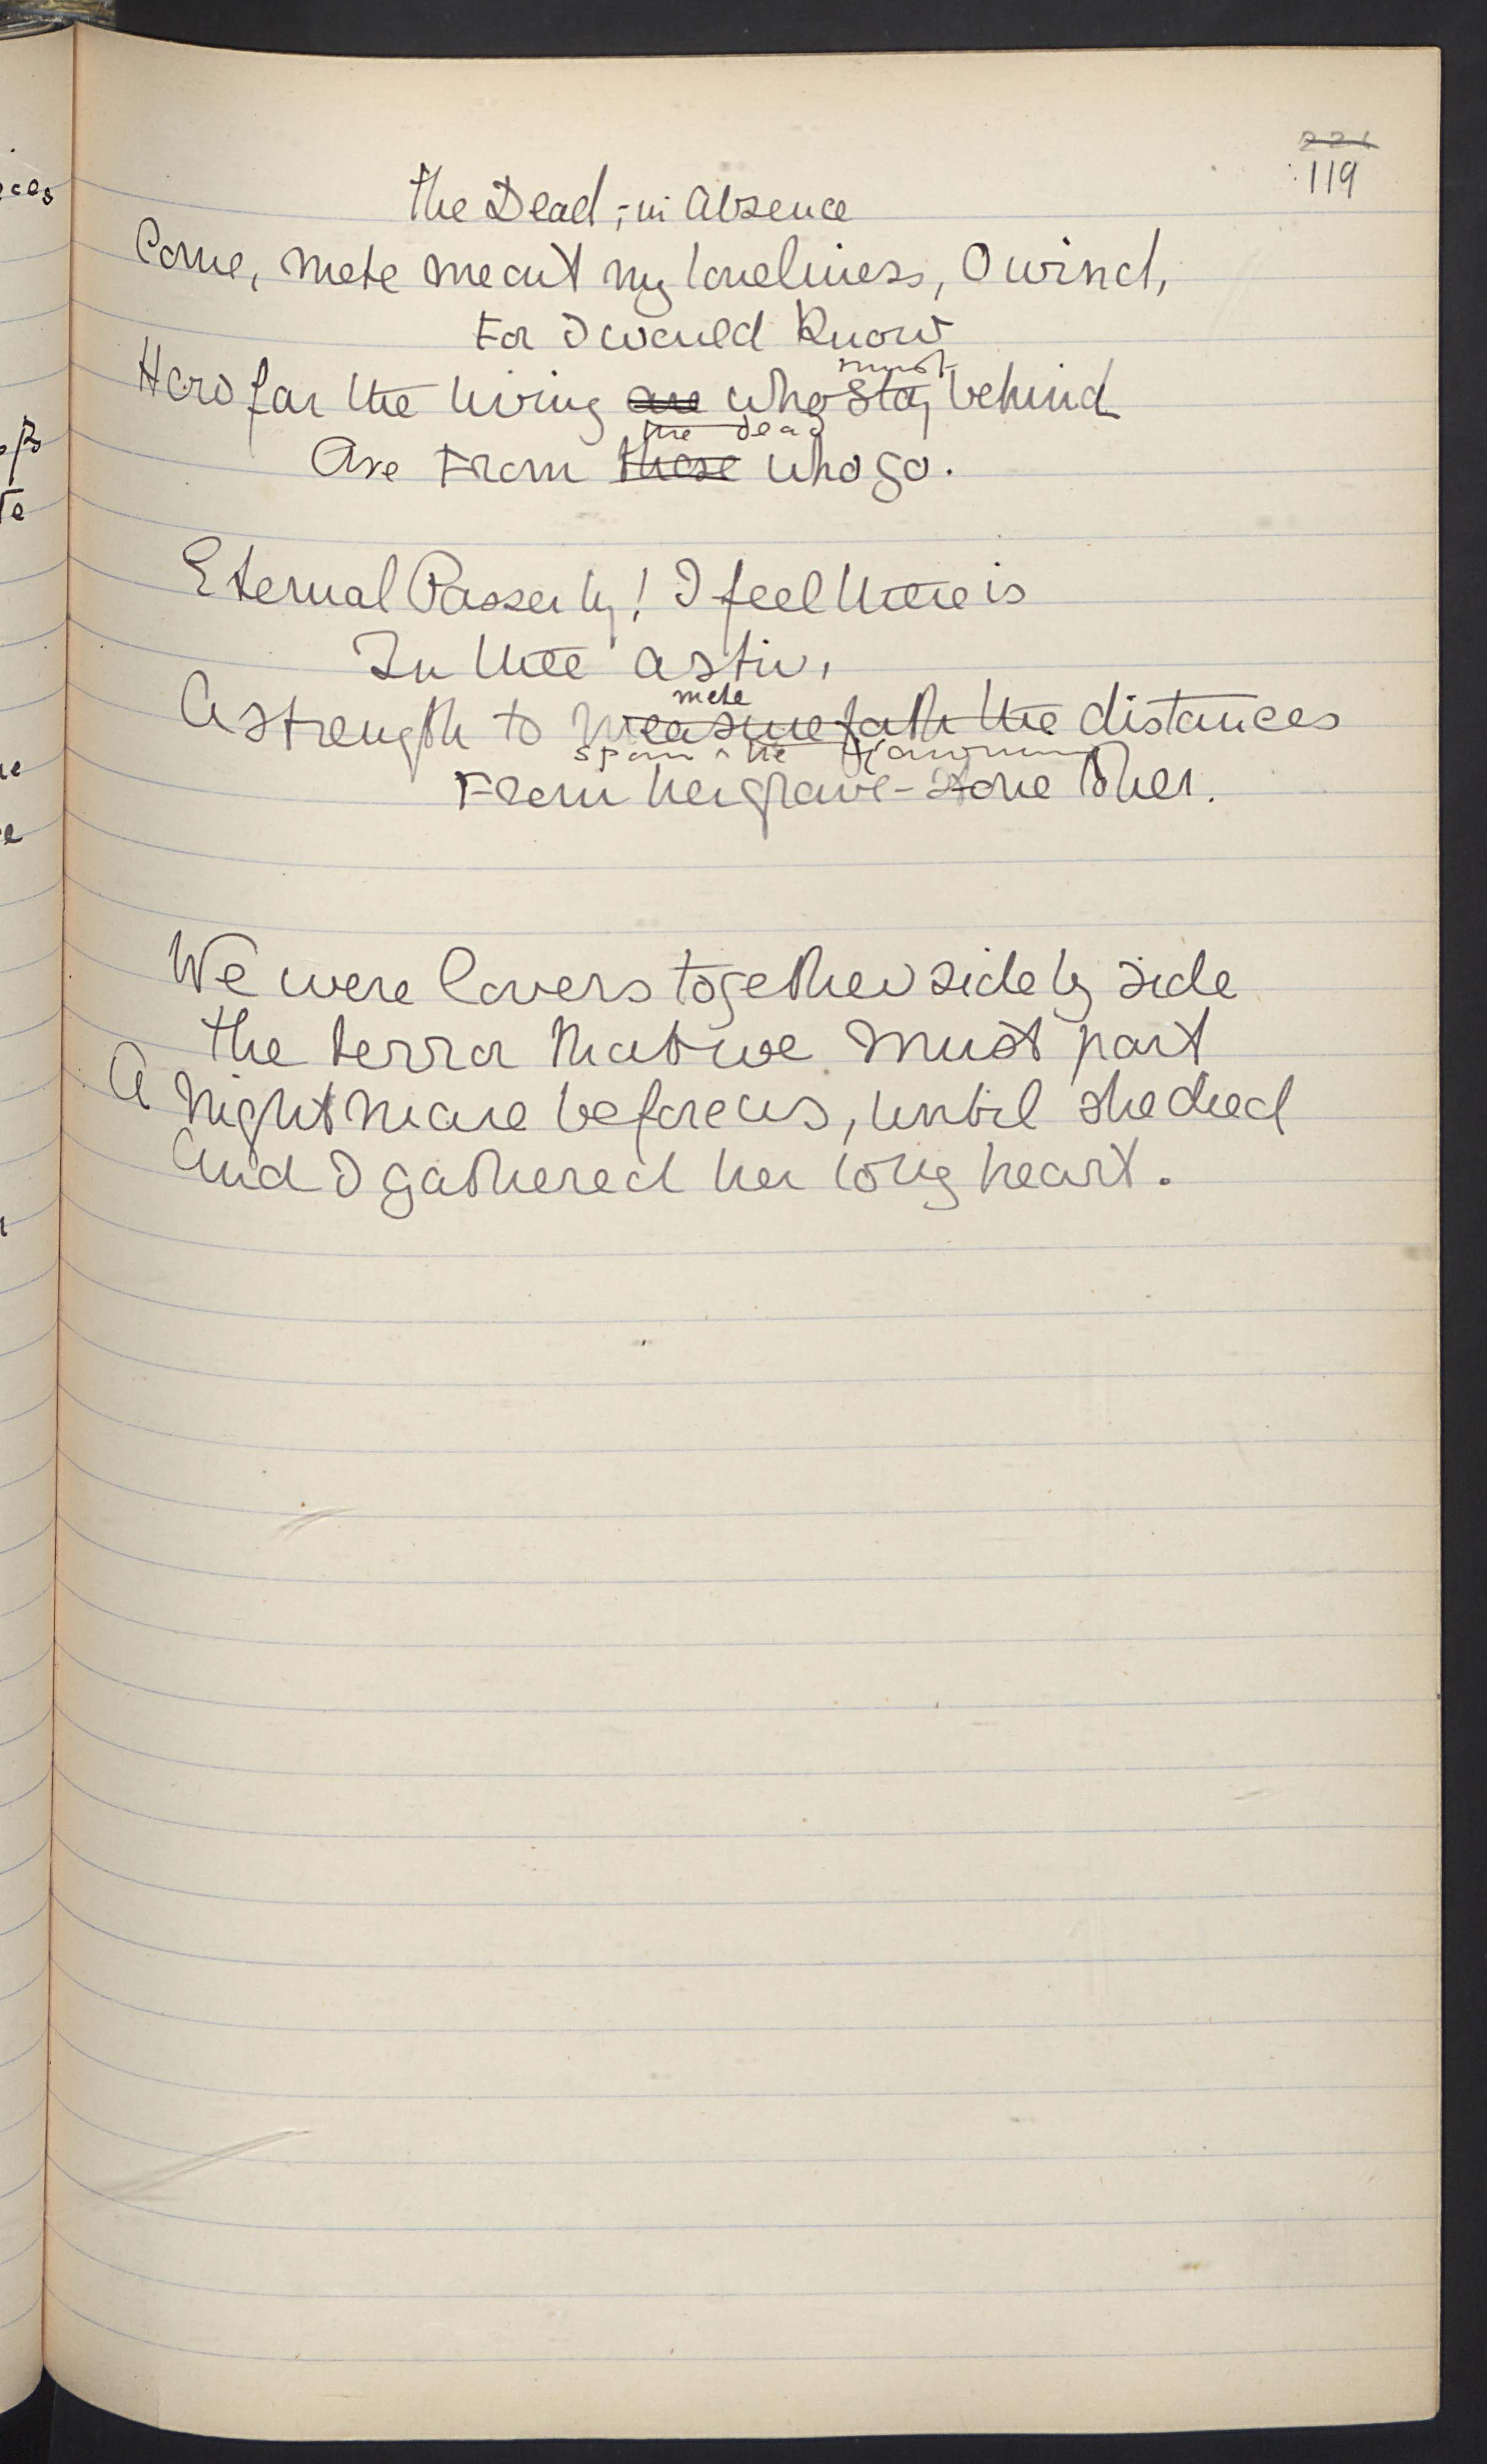 221
119
The Dead, in Absence
Come, mete me out my loneliness, O wind,
For I would know
must
How far the living are who stay behind
the dead
Are from those who go.
Eternal Passer by! I feel there is
In thee a stir,
mete
A strength to measure forth the distances
span the
From her grave-stone to her.
We were lovers together side by side
The terror that we must part
A nightmare before us, until she died
And I gathered her long heart.